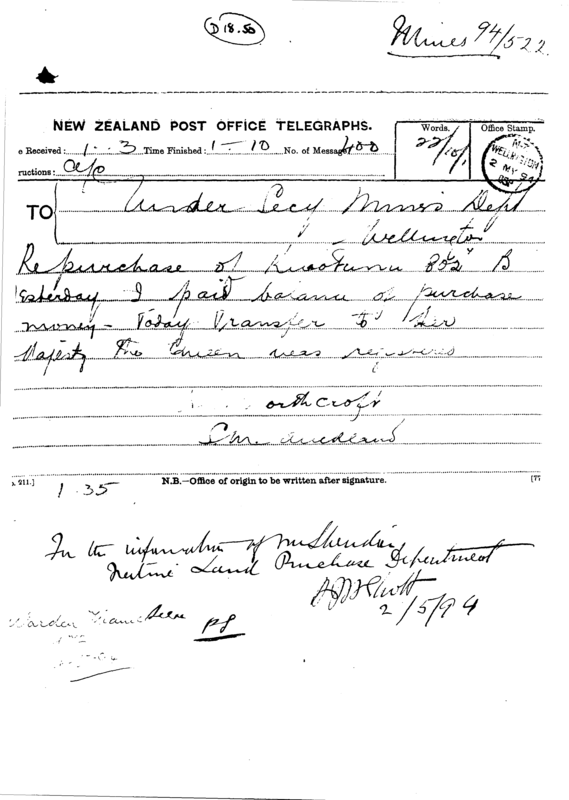 D 18.50
Mines 94/522
NEW ZEALAND POST OFFICE TELEGRAPHS.
e Received: 1..3 Time Finished: 1 - 10 No. of Message: 400
Words. 22/10/1
Office Stamp.
N.Z
WELLINGTON
2 MY 94
ructions: a/c
TO Under Secy Mines Dept
Wellington
Re purchase of Kuaotunu B
Yesterday I paid balance of purchase
money - Today Transfer to Her
Majesty the Queen was registered
orthcroft
S.M. Auckland
. 211.] N.B.—Office of origin to be written after signature. [77
1.35
For the information of Mr Sheridan
Native Land Purchase Department
2/5/94
Warden Thames
PS